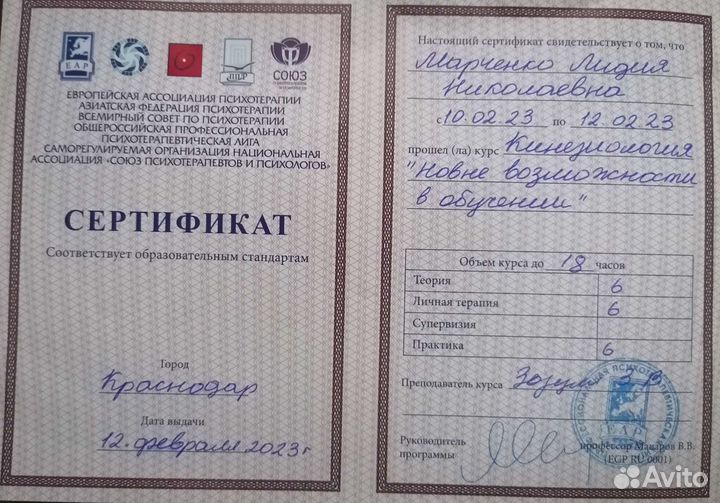 ЕАР
ППЛ
СОЮЗ
ЕВРОПЕЙСКАЯ АССОЦИАЦИЯ ПСИХОТЕРАПИИ
АЗИАТСКАЯ ФЕДЕРАЦИЯ ПСИХОТЕРАПИИ
ВСЕМИРНЫЙ СОВЕТ ПО ПСИХОТЕРАПИИ
ОБЩЕРОССИЙСКАЯ ПРОФЕССИОНАЛЬНАЯ
ПСИХОТЕРАПЕВТИЧЕСКАЯ ЛИГА
САМОРЕГУЛИРУЕМАЯ ОРГАНИЗАЦИЯ НАЦИОНАЛЬНАЯ
АССОЦИАЦИЯ «СОЮЗ ПСИХОТЕРАПЕВТОВ И ПСИХОЛОГОВ»
СЕРТИФИКАТ
Соответствует образовательным стандартам
Город
Краснодар
Дата выдачи
12 февраля 2023г
Настоящий сертификат свидетельствует о том, что
Марченко Лидия
Николаевна
с 10.02.23 по 12.02.23
прошел (ла) курс Кинезиология
"Новые возможности
в обучении"
Объем курса до 18 часов
Теория 6
Личная терапия 6
Супервизия
Практика 6
Преподаватель курса
ЕАР
Руководитель
программы
профессор Макаров В.В.
(EGP RU 0001)
Avito